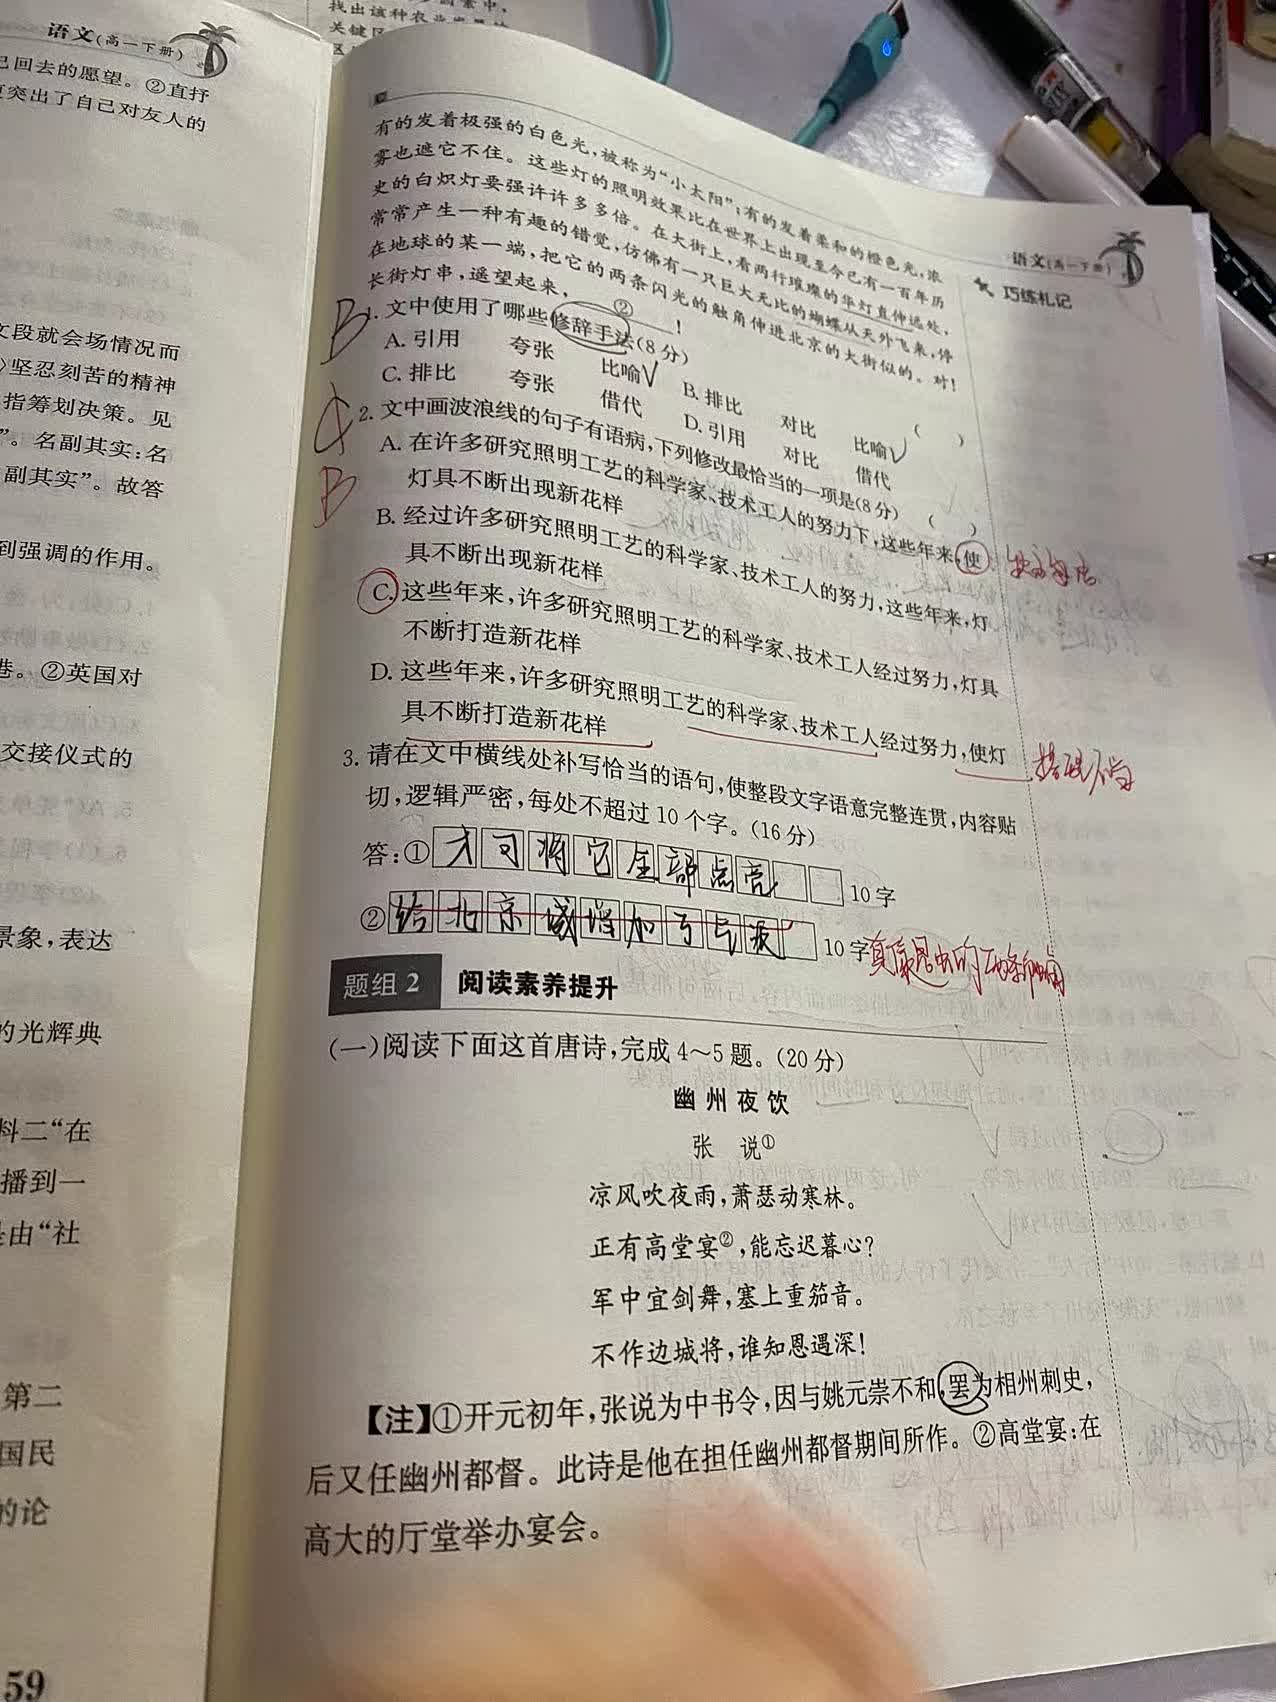 找出该种农业
关键区
语文(高一下册)
己回去的愿望。②直抒
突出了自己对友人的
文段就会场情况而
坚忍刻苦的精神
指筹划决策。见
”。名副其实:名
副其实”。故答
到强调的作用。
港。②英国对
交接仪式的
景象,表达
的光辉典
料二“在
播到一
是由“社
第二
国民
的论
59
语文(高一下册)
巧练札记
有的发着极强的白色光,被称为“小太阳”;有的发着柔和的橙色光,浓
雾也遮它不住。这些灯的照明效果比在世界上出现至今已有一百年历
史的白炽灯要强许许多多倍。在大街上,看两行璀璨的华灯直伸远处,
常常产生一种有趣的错觉,仿佛有一只巨大无比的蝴蝶从天外飞来,停
在地球的某一端,把它的两条闪光的触角伸进北京的大街似的。对!
长街灯串,遥望起来, ② !
B
1. 文中使用了哪些修辞手法(8分) ( )
A. 引用 夸张 比喻√ B. 排比 对比 比喻√
C. 排比 夸张 借代 D. 引用 对比 借代
2. 文中画波浪线的句子有语病,下列修改最恰当的一项是(8分) ( )
B
A. 在许多研究照明工艺的科学家、技术工人的努力下,这些年来,使
灯具不断出现新花样
B. 经过许多研究照明工艺的科学家、技术工人的努力,这些年来,灯
具不断出现新花样
C. 这些年来,许多研究照明工艺的科学家、技术工人经过努力,灯具
不断打造新花样
D. 这些年来,许多研究照明工艺的科学家、技术工人经过努力,使灯
具不断打造新花样
搭配不当
3. 请在文中横线处补写恰当的语句,使整段文字语意完整连贯,内容贴
切,逻辑严密,每处不超过10个字。(16分)
答:①才可将它全部点亮 10字
②给北京城增加了 10字
真像昆虫的两条触角
题组2 阅读素养提升
(一)阅读下面这首唐诗,完成4～5题。(20分)
幽州夜饮
张 说①
凉风吹夜雨,萧瑟动寒林。
正有高堂宴②,能忘迟暮心?
军中宜剑舞,塞上重笳音。
不作边城将,谁知恩遇深!
【注】①开元初年,张说为中书令,因与姚元崇不和,罢为相州刺史,
后又任幽州都督。此诗是他在担任幽州都督期间所作。②高堂宴:在
高大的厅堂举办宴会。